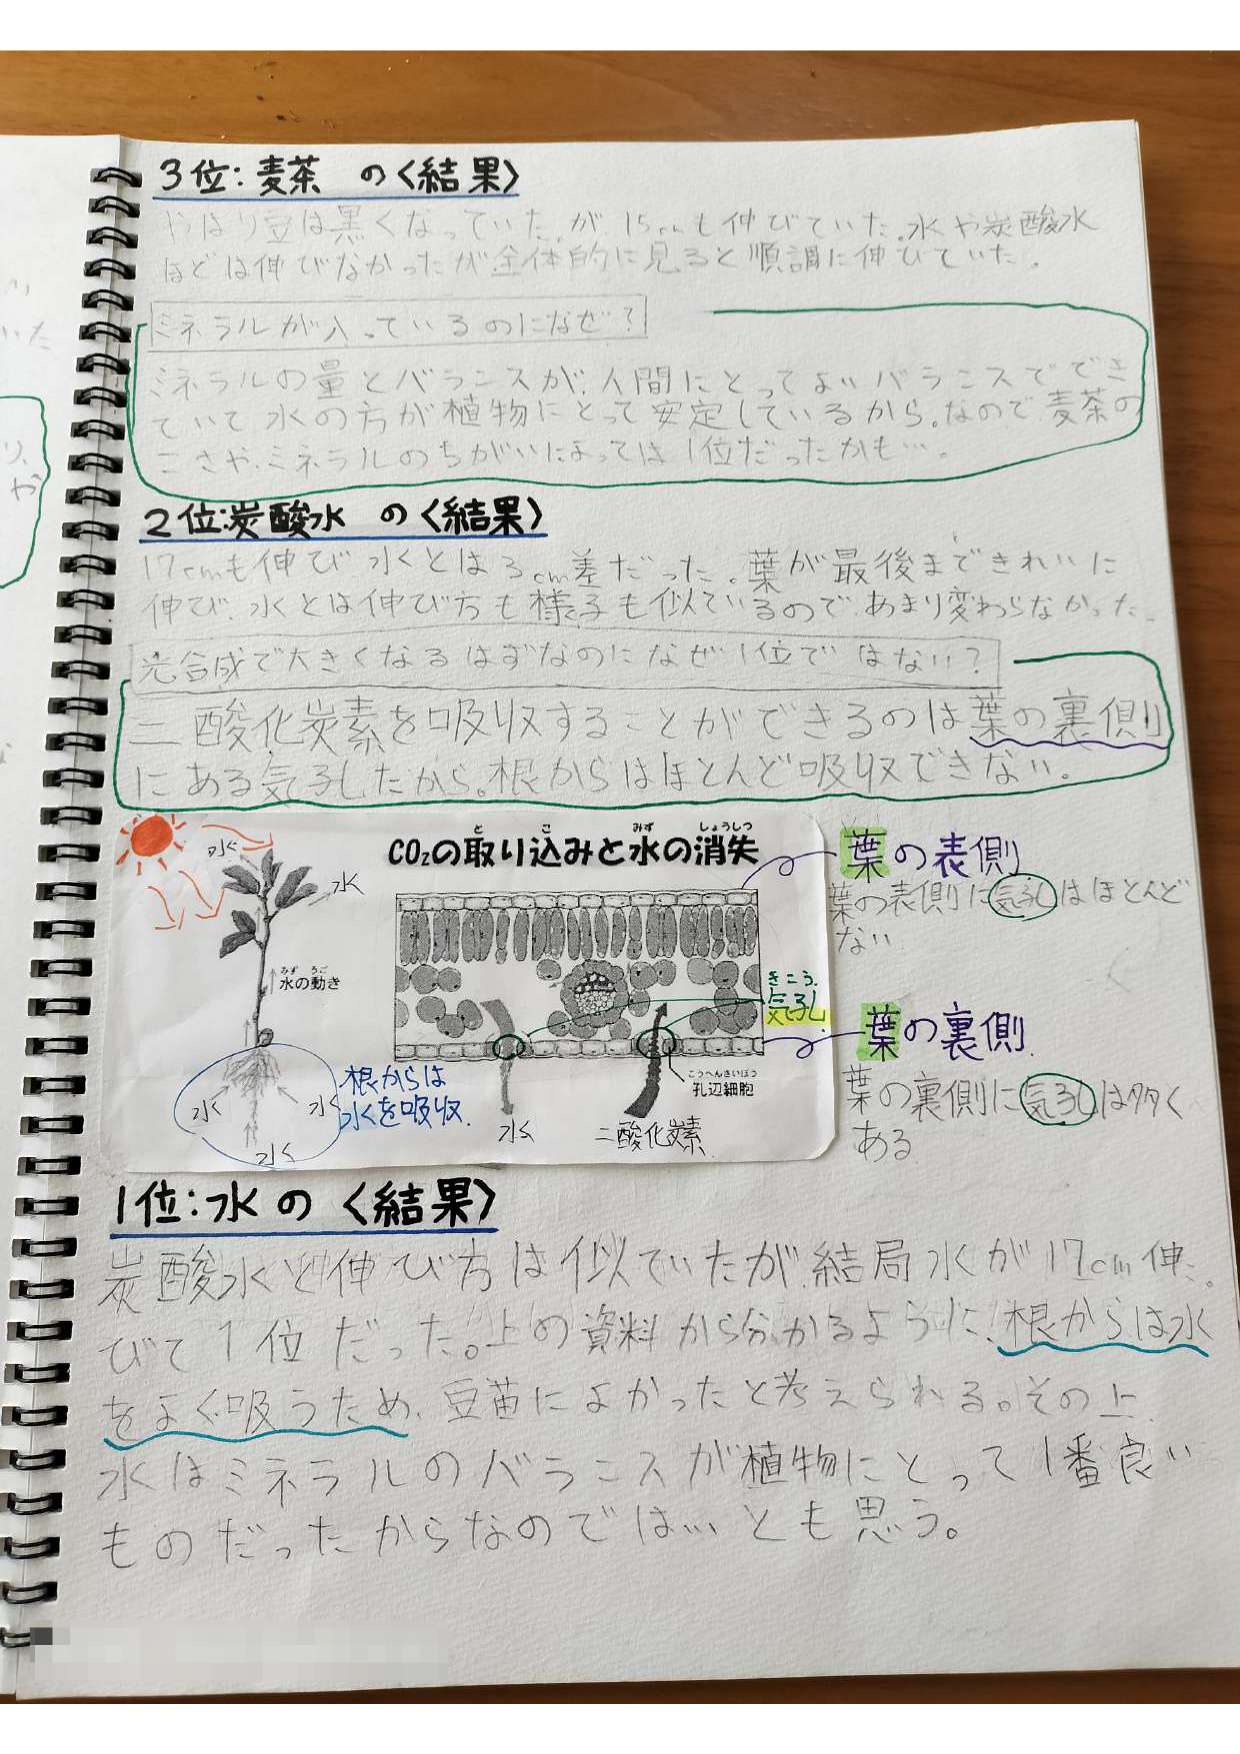 3位:麦茶 の〈結果〉
やはり豆は黒くなっていた。が 15cmも伸びていた。水や炭酸水
ほどは伸びなかったが全体的に見ると順調に伸びていた。
ミネラルが入っているのになぜ?
ミネラルの量とバランスが、人間にとってよいバランスでき
ていて水の方が植物にとって安定しているから。なので麦茶の
こさや、ミネラルのちがいによっては1位だったかも…。
2位:炭酸水 の〈結果〉
17cmも伸び 水とは3cm差だった。葉が最後まできれいに
伸び、水とは伸び方も様子も似ているので、あまり変わらなかった。
光合成で大きくなるはずなのになぜ1位ではない?
二酸化炭素を吸収することができるのは葉の裏側
にある気孔だから。根からはほとんど吸収できない。
CO₂の取り込みと水の消失
と こ みず しょうしつ
葉の表側
葉の表側に気孔はほとんど
ない
水
水
みず うご
水の動き
きこう
気孔
葉の裏側
葉の裏側に気孔は多く
ある
こうへんさいぼう
孔辺細胞
根からは
水を吸収
水
水
水
水
二酸化炭素
1位:水の〈結果〉
炭酸水と伸び方は似ていたが、結局水が17cm伸
びて1位だった。上の資料から分かるように、根からは水
をよく吸うため、豆苗によかったと考えられる。その上、
水はミネラルのバランスが植物にとって1番良い
ものだったからなのでは…とも思う。